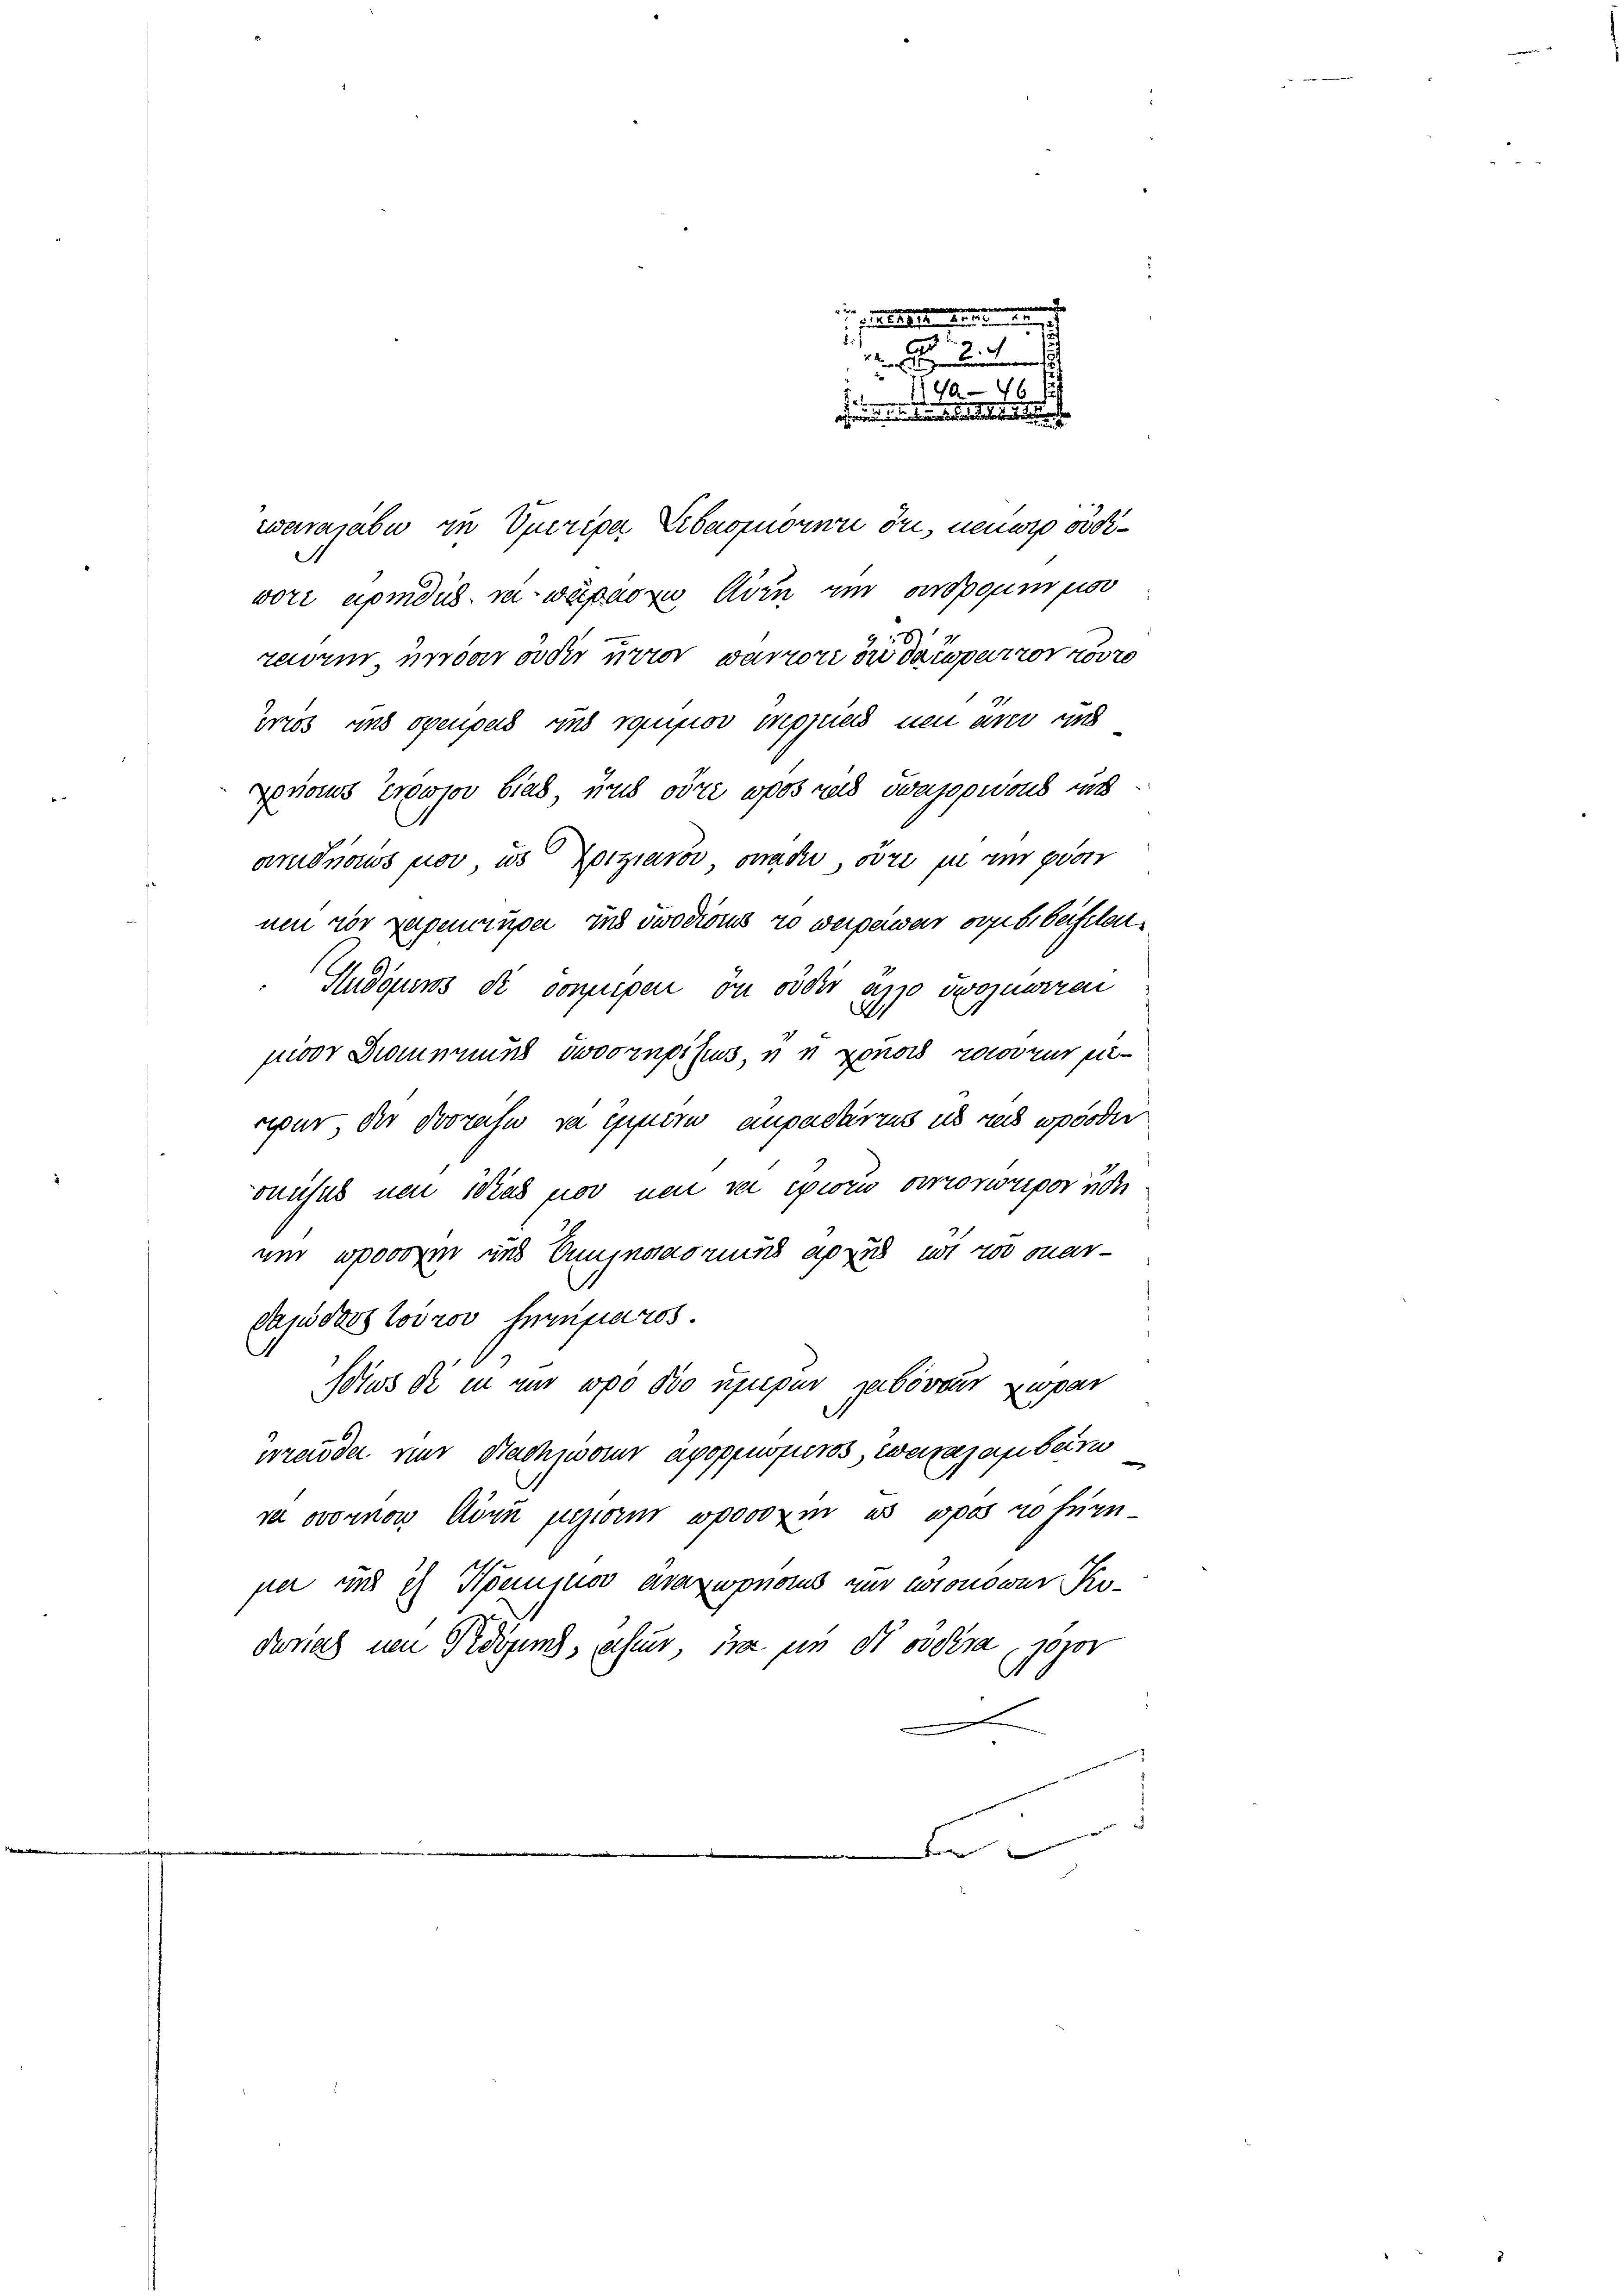 ἐπαναλάβω τῇ Ὑμετέρᾳ Σεβασμιότητι ὅτι, καίπερ οὐδέ-
ποτε ἀρνηθεὶς νὰ παράσχω Αὐτῇ τὴν συνδρομήν μου
ταύτην, ἐννόουν οὐδὲν ἧττον πάντοτε ὅτι θὰ ἔπραττον τοῦτο
ἐντὸς τῆς σφαίρας τῆς νομίμου ἐνεργείας καὶ ἄνευ τῆς
χρήσεως ἐνόπλου βίας, ἥτις οὔτε πρὸς τὰς ὑπαγορεύσεις τῆς
συνειδήσεώς μου, ὡς Χριστιανοῦ, συνάδει, οὔτε μὲ τὴν φύσιν
καὶ τὸν χαρακτῆρα τῆς ὑποθέσεως τὸ παράπαν συμβιβάζεται.
δὲ σήμερον ὅτι οὐδὲν ἄλλο ὑπολείπεται
μέσον Διοικητικῆς ὑποστηρίξεως, ἢ ἡ χρῆσις τοιούτων μέ-
τρων, δὲν διστάζω νὰ ἐμμείνω ἀκραδάντως εἰς τὰς πρόσθεν
σκέψεις καὶ ἰδέας μου καὶ νὰ ἐπιστήσω συντονώτερον ἤδη
τὴν προσοχὴν τῆς Ἐκκλησιαστικῆς ἀρχῆς ἐπὶ τοῦ σκαν-
δαλώδους τούτου ζητήματος.
Ἰδίως δὲ ἐκ τῶν πρὸ δύο ἡμερῶν λαβόντων χώραν
ἐνταῦθα τῶν ἀφορμώμενος, ἐπαναλαμβάνω
νὰ συστήσω Αὐτῇ μείζονα προσοχὴν ὡς πρὸς τὸ ζήτη-
μα τῆς ἐξ Ἡρακλείου ἀναχωρήσεως τῶν ἐπισκόπων Κυ-
δωνίας καὶ Ῥεθύμνης, ἀξιῶν, ἵνα μὴ δι' οὐδένα λόγον